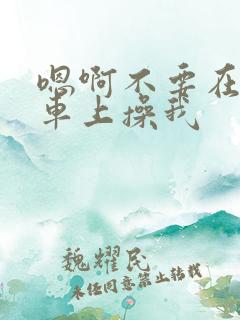 嗯啊不要在
車上操我
魏耀民
未经同意禁止转载